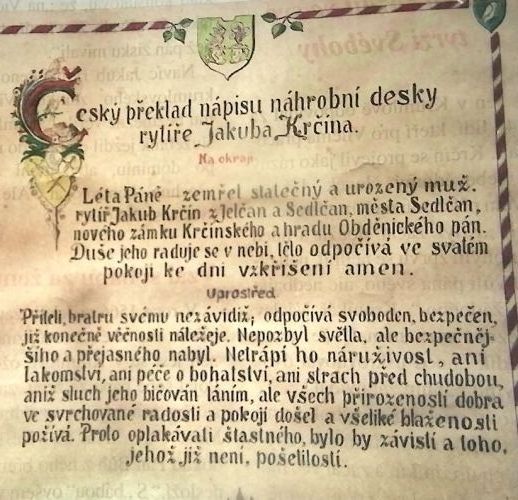 Český překlad nápisu náhrobní desky
rytíře Jakuba Krčína.
Na okraji
Léta Páně zemřel statečný a urozený muž.
rytíř Jakub Krčín z Jelčan a Sedlčan, města Sedlčan,
nového zámku Krčínského a hradu Obděnického pán.
Duše jeho raduje se v nebi, tělo odpočívá ve svatém
pokoji ke dni vzkříšení amen.
Uprostřed
Příteli, bratru svému nezávidiž; odpočívá svoboden, bezpečen,
již konečně věčnosti náležeje. Nepozbyl světla, ale bezpečněj-
šího a přejasného nabyl. Netrápí ho náruživost, ani
lakomství, ani péče o bohatství, ani strach před chudobou,
aniž sluch jeho bičován láním, ale všech přirozeností dobra
ve svrchované radosti a pokoji došel a všeliké blaženosti
požívá. Proto oplakávati šťastného, bylo by závistí a toho,
jehož již není, pošetilostí.